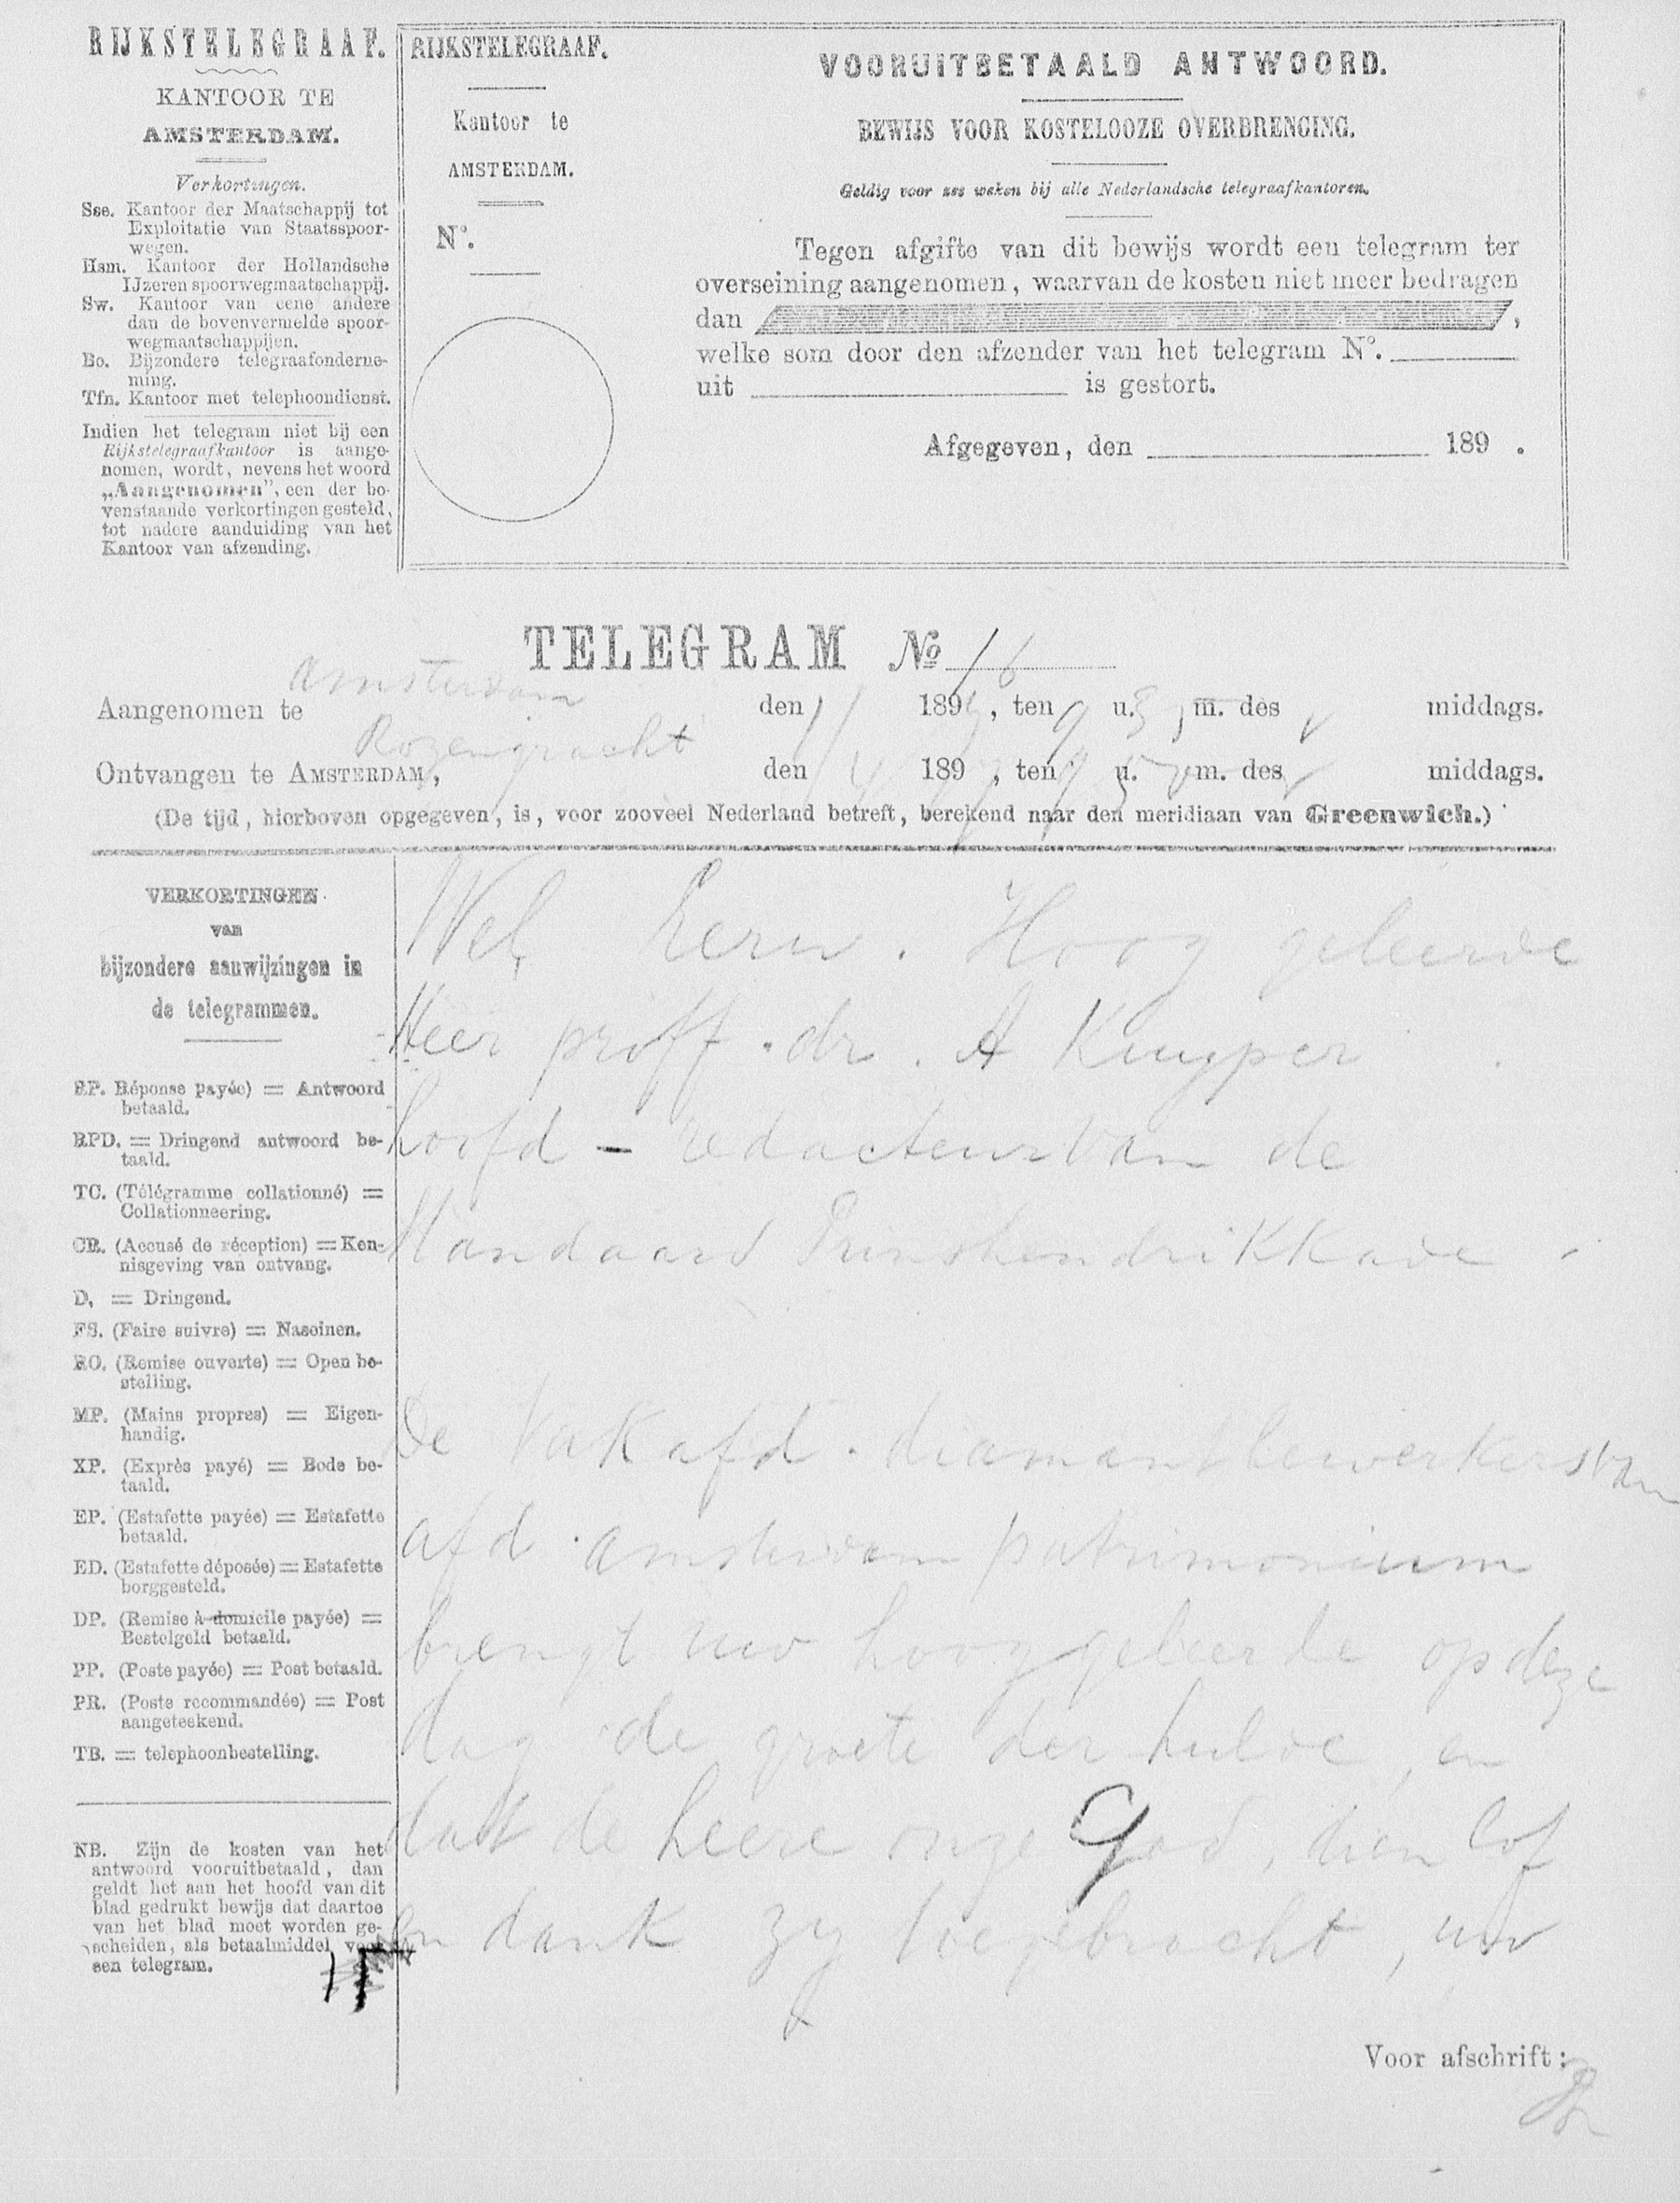 RIJKSTELEGRAAF.
KANTOOR TE
AMSTERDAM.
Verkortingen.
Sse. Kantoor der Maatschappij tot
Exploitatie van Staatsspoor-
wegen.
Hsm. Kantoor der Hollandsche
IJzeren spoorwegmaatschappij.
Sw. Kantoor van eene andere
dan de bovenvermelde spoor-
wegmaatschappijen.
Bo. Bijzondere telegraafonderne-
ming.
Tfn. Kantoor met telephoondienst.
Indien het telegram niet bij een
Rijkstelegraafkantoor is aange-
nomen, wordt, nevens het woord
„Aangenomen", een der bo-
venstaande verkortingen gesteld,
tot nadere aanduiding van het
Kantoor van afzending.
RIJKSTELEGRAAF.
Kantoor te
AMSTERDAM.
N°.
VOORUITBETAALD ANTWOORD.
BEWIJS VOOR KOSTELOOZE OVERBRENGING.
Geldig voor zes weken bij alle Nederlandsche telegraafkantoren.
Tegen afgifte van dit bewijs wordt een telegram ter
overseining aangenomen, waarvan de kosten niet meer bedragen
dan ,
welke som door den afzender van het telegram N°.
uit is gestort.
Afgegeven, den 189 .
TELEGRAM No 16
Aangenomen te Amsterdam den 1/ 189 , ten 9 u. m. des v middags.
Rozengracht
Ontvangen te AMSTERDAM, den 1/4 189 , ten 9 u. m. des v middags.
(De tijd, hierboven opgegeven, is, voor zooveel Nederland betreft, berekend naar den meridiaan van Greenwich.)
VERKORTINGEN
van
bijzondere aanwijzingen in
de telegrammen.
RP. Réponse payée) = Antwoord
betaald.
RPD. = Dringend antwoord be-
taald.
TC. (Télégramme collationné) =
Collationneering.
CR. (Accusé de réception) = Ken-
nisgeving van ontvang.
D. = Dringend.
FS. (Faire suivre) = Naseinen.
RO. (Remise ouverte) = Open be-
stelling.
MP. (Mains propres) = Eigen-
handig.
XP. (Exprès payé) = Bode be-
taald.
EP. (Estafette payée) = Estafette
betaald.
ED. (Estafette déposée) = Estafette
borggesteld.
DP. (Remise à domicile payée) =
Bestelgeld betaald.
PP. (Poste payée) = Post betaald.
PR. (Poste recommandée) = Post
aangeteekend.
TB. = telephoonbestelling.
NB. Zijn de kosten van het
antwoord vooruitbetaald, dan
geldt het aan het hoofd van dit
blad gedrukt bewijs dat daartoe
van het blad moet worden ge-
scheiden, als betaalmiddel voor
een telegram.
Wel Eerw. Hoog geleerde
Heer proff. dr. A Kuyper
hoofd - redacteur van de
Standaard Prinshendrikkade
De Vakafd. diamantbewerkers van
afd. Amsterdam patrimonium
brengt uw hooggeleerde op deze
dag de groete der hulde, en
datt de heere onze God, dien lof
en dank zy toegebracht, uw
Voor afschrift: